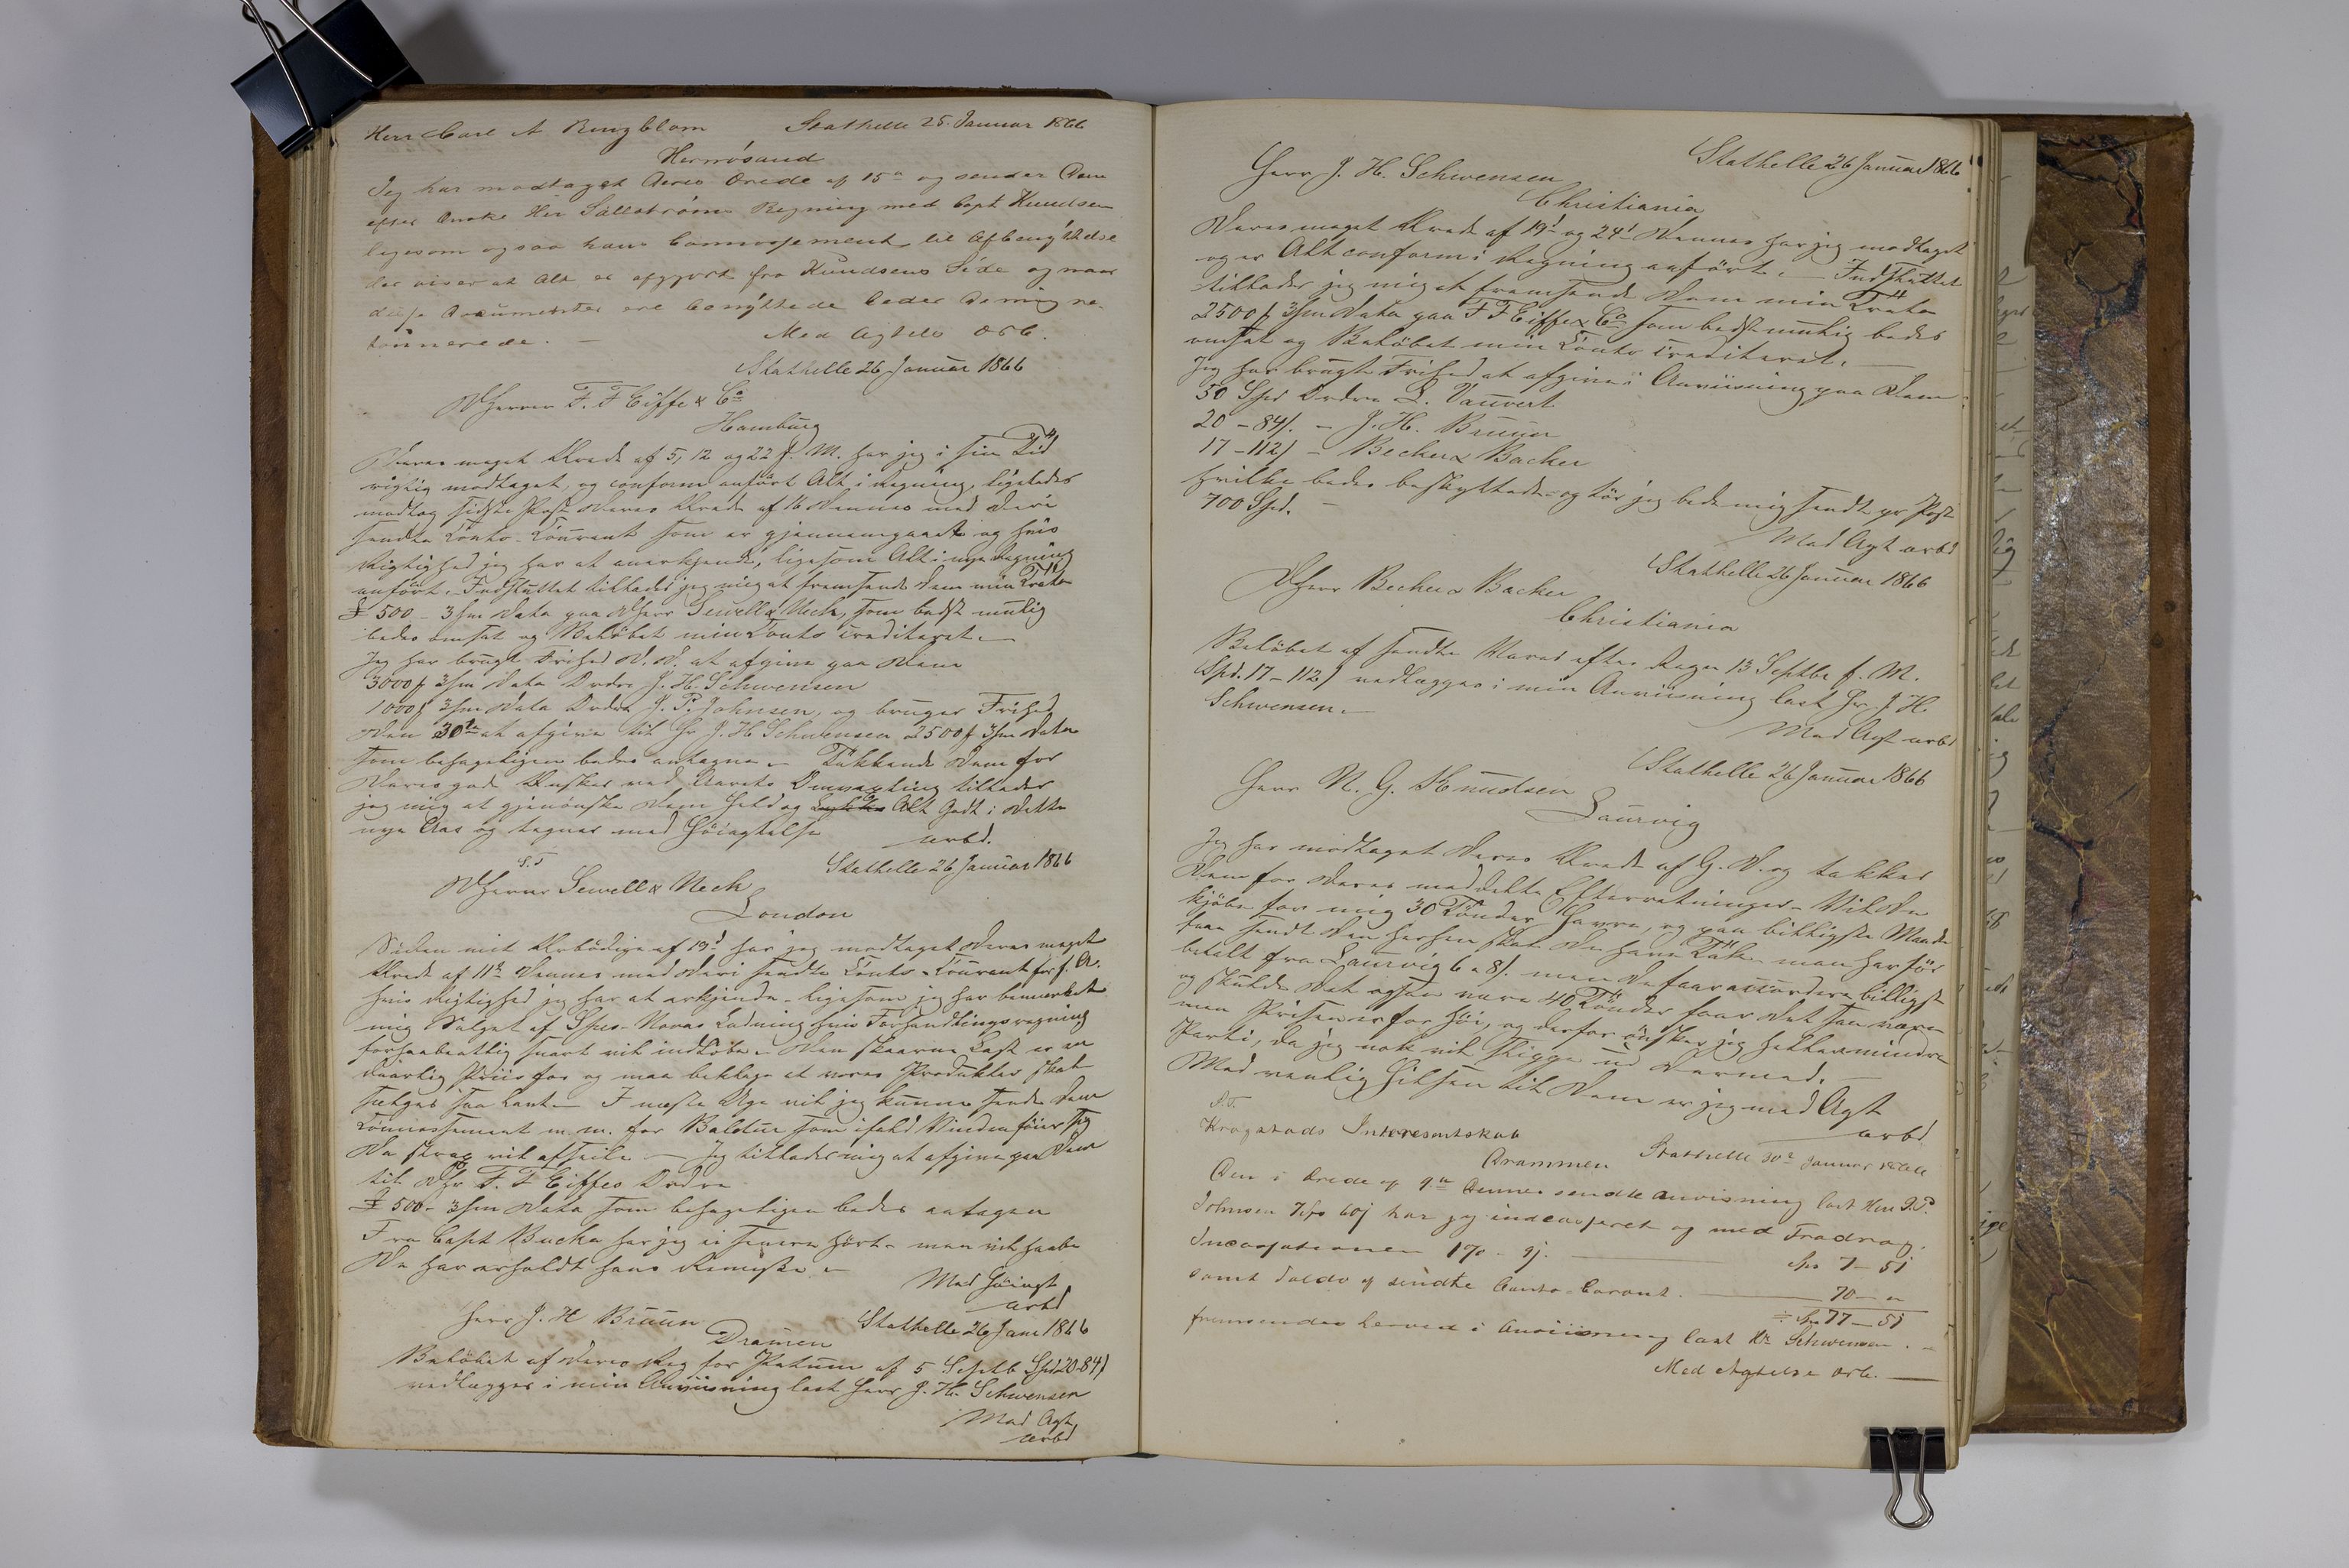 Herr Carl A Ringblom Stathelle 25. Januar 1866
Hernøsand
Jeg har modtaget Deres Ærede af 15de og sender Dem
efter Ønske Her Sällströms Regning med Capt Knudsen
ligesom ogsaa hans Connossement til Afbenyttelse
der viser at Alt er afgjort fra Knudsens Side og naar
disse Documenter ere benyttede beder De mig re-
tournerede. –
Med Agtelse Ærb.
Stathelle 26 Januar 1866
DHerrer F. F Eiffe & Co
Hamburg
Deres meget Ærede af 5, 12 og 22 f. M. har jeg i sin Tid
rigtig modtaget, og conform anført Alt i Regning, ligeledes
modtog sidste Post Deres Ærede af 16 Dennes med deri
sendte Conto-Courant som er gjennemgaaet og hvis
Rigtighed jeg har at anerkjende, ligesom Alt i nye Regning
anført. Indsluttet tillader jeg mig at fremsende Dem min Tratte
£ 500 – 3/m Dato paa DHerr Sewell & Neck, som bedst mulig
bedes omsat og Beløbet min Conto crediteret. –
Jeg har brugt Frihed D. D. at afgive paa Dem
3000 f 3/m Dato Ordre J. H. Schwensen
1000 f 3/m Dato Ordre J. P. Johnsen, og bruger Frihed
den 30te at afgive til Hr J. H Schwensen 2500 f 3/m Dato
som behageligen bedes antagne. – Takkende Dem for
Deres gode Ønsker ved Aarets Omvexling tillader
jeg mig at gjenønske Dem Held og Alt Godt i dette
nye Aar og tegner med Høiagtelse
ærbd.
S. T Stathelle 26 Januar 1866
DHerrer Sewell & Neck
London
Siden mit Ærbødige af 19d har jeg modtaget Deres meget
Ærede af 11te Dennes med deri sendte Conto-Courant for f. A.
hvis Rigtighed jeg har at erkjende – ligesom jeg har bemærket
mig Salget af Spes-Novas Ladning hvis Forhandlingsregning
forhaabentlig snart vil indløbe. – Den skaarne Last er en
daarlig Priis for og maa beklage at vores Produkter skal
sælges saa Lavt. – I næste Uge vil jeg kunne sende Dem
Connossement m. m. for Baldur som ifald Vinden føier sig
da strax vil afseile – Jeg tillader mig at afgive paa Dem
til DHr F. F Eiffes Ordre
£ 500 – 3/m Dato som behageligen bedes antagen
Fra Capt Backe har jeg ei senere hørt – men vil haabe
De har erholdt hans Remisse. –
Med Høiagt
ærbd
Herr J. H Bruun Stathelle 26 Jan 1866
Dramen
Beløbet af Deres Reg for af 5 Septb Spd 20-84 s
vedlægges i min Anviisning last Herr J. H. Schwensen
Med Agt,
ærbd
Stathelle 26 Januar 1866
Herr J. H. Schwensen
Christiania
Deres meget Ærede af 19d og 24d Dennes har jeg modtaget
og er Alt conform i Regning anført. – Indsluttet
tillader jeg mig at fremsende Dem min Tratte
2500 f 3/m Dato paa F F Eiffe & Co som bedst mulig bedes
omsat og Beløbet min Conto crediteret. –
Jeg har brugt Frihed at afgive i Anviisning paa Dem
50 Spd Ordre L. Vauvert
20 – 84 s. – J. H. Bruun
17 – 112 s – Becher & Backer
hvilke bedes beskyttede – og tør jeg bede mig sendt pr Post
700 Spd. –
Med Agt ærbd
Stathelle 26 Januar 1866
DHerr Becher & Backer
Christiania
Beløbet af sendte Varer efter Regn 13 Septbr f. M.
Spd. 17 – 112 s vedlægges i min Anviisning last Hr J. H.
Schwensen. –
Med Agt ærbd
Stathelle 26 Januar 1866
Herr N. G. Knudsen
Laurvig
Jeg har modtaget Deres Ærede af G. D. og takker
Dem for Deres meddelte Efterretninger – Vil De
kjøbe for mig 30 Tønder Havre, og paa billigste Maade
faae sendt den herhen skal De have Tak – man har før
betalt fra Laurvig 6 a 8 s. men De faar accordere billigst
og skulde det ogsaa være 40 Tønder faar det saa være
men Prisen er for høi, og derfor ønsker jeg heller mindre
Parti, da jeg nok vil ligge inde dermed. –
Med venlig Hilsen til Dem er jeg med Agt
ærbd
S. T.
Krogstads Interesentskab
Drammen Stathelle 30te Januar 1866
Den i Ærede af 9de Dennes sendte Anvisning last Herr J. P.
Johnsen 7 Spd 60 s har jeg indcasseret og med Fradrag,
Incassationen 1% – 9 s. – Spd 7 – 51
samt Saldo af sendte Conto-Corant. – 70 – "
= Spd 77 – 51
fremsendes herved i Anviisning last Hr Schwensen. –
Med Agtelse Ærb. –